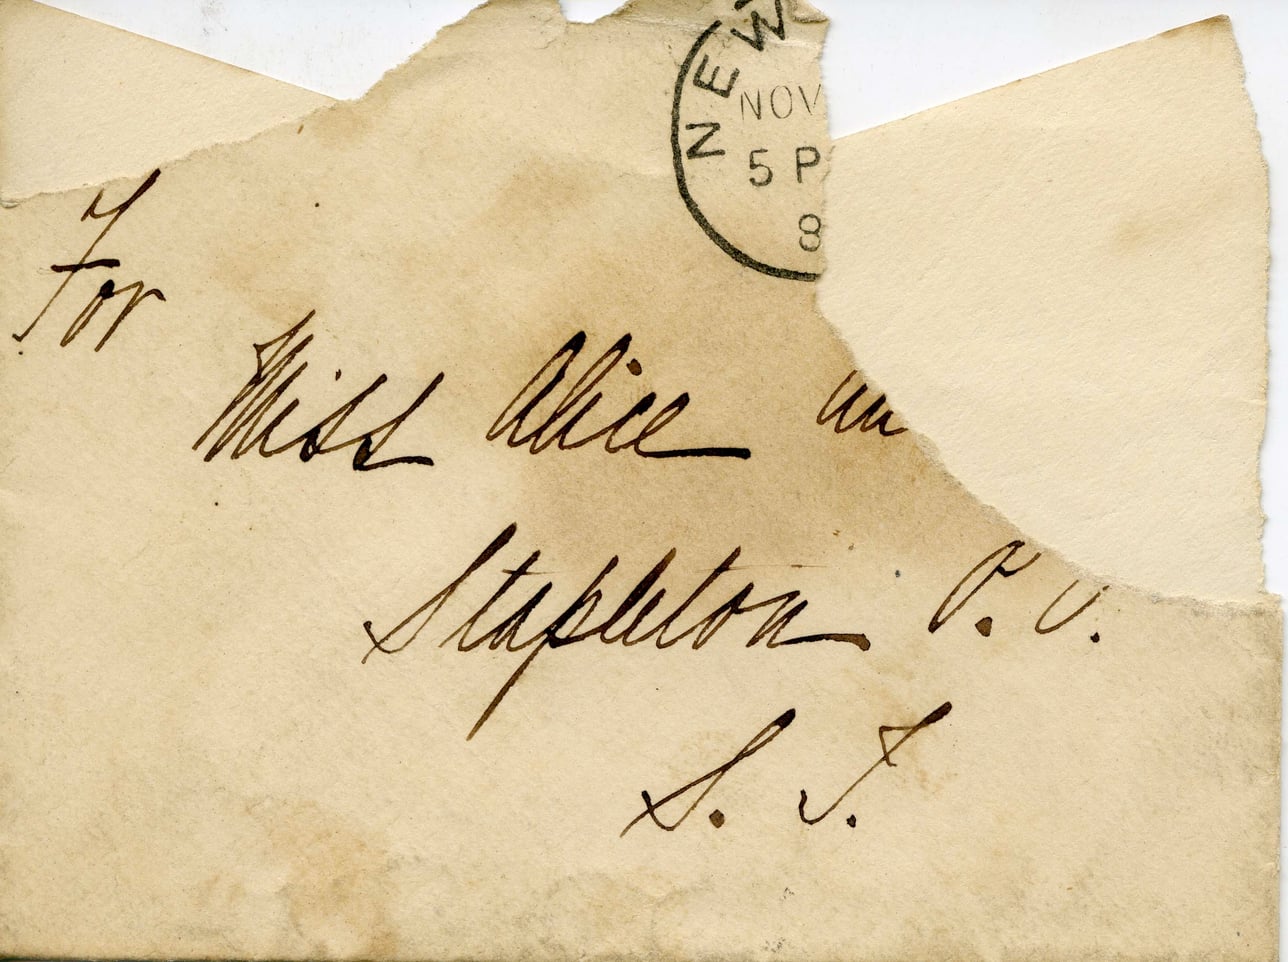 NEW
NOV
5 P
8
For
Miss Alice Au
Stapleton P. O.
S. I.